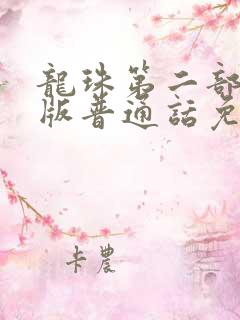 龍珠第二部
版普通話免
卡農